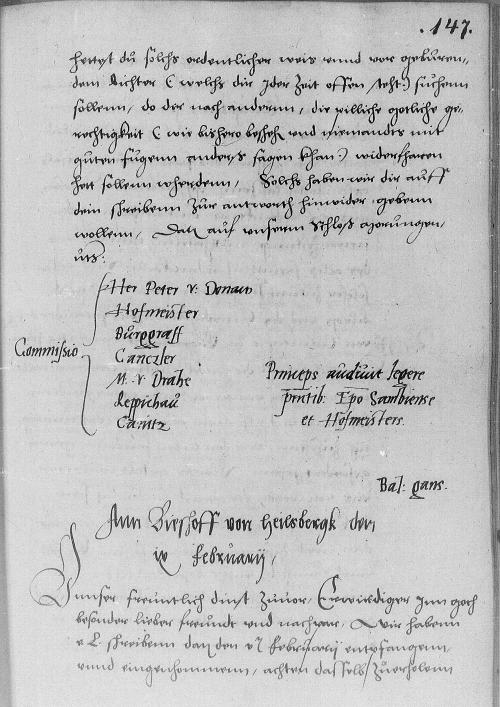 .147.
hettest du solchs ordentlicher weis vnnd vor geburen,,
dem Richter ( welchs dir jder Zeit offen steht:) suchenn
sollenn, do dir nach anderm, die pilliche gotliche ge,,
rechtigkeit ( wie bishero besche vnd niemandts mit
guten fugenn anders sagen khan:) widerfharen
hett sollenn wherdenn, Solchs haben wir dir auff
dein schreibenn Zur antworth hinwider gebenn
wollenn, Datz auf vnserm Schlosz
uts:
Her Peter v: Donaw
Hofmeister
Burggraff
Commissio
Cantzler
M. v Drahe
Reppichau
Canitz
Princeps audiuit legere
pntib: Epo Sambiense
et Hofmeisters.
Bal: gans.
Ann Bischoff von Heilsbergk den
ix februarij,
Vnnser freuntlich dinst zuuor, Erwirdiger Inn goth
besonder lieber freundt vnd nachpar, Wir habenn
e L schreibenn datz den v februarij entpfangenn,
vnnd eingenhommenn, achten dasselb zuerholenn